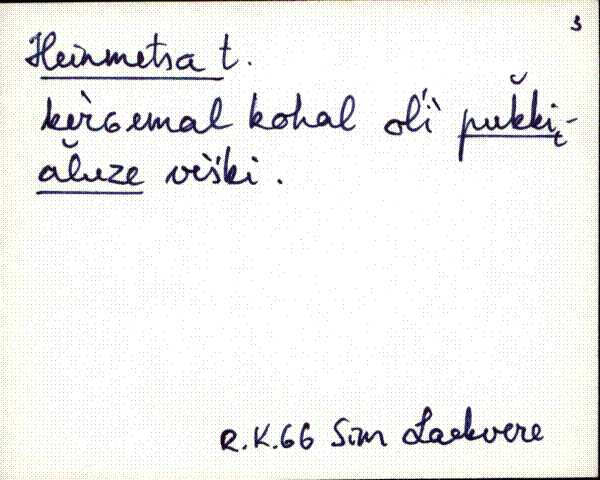 3
Heinmetsa t.
kèrGemal kohal oĺi pukki̮-
ăluze vèški.
R.K.66 Sim Laekvere